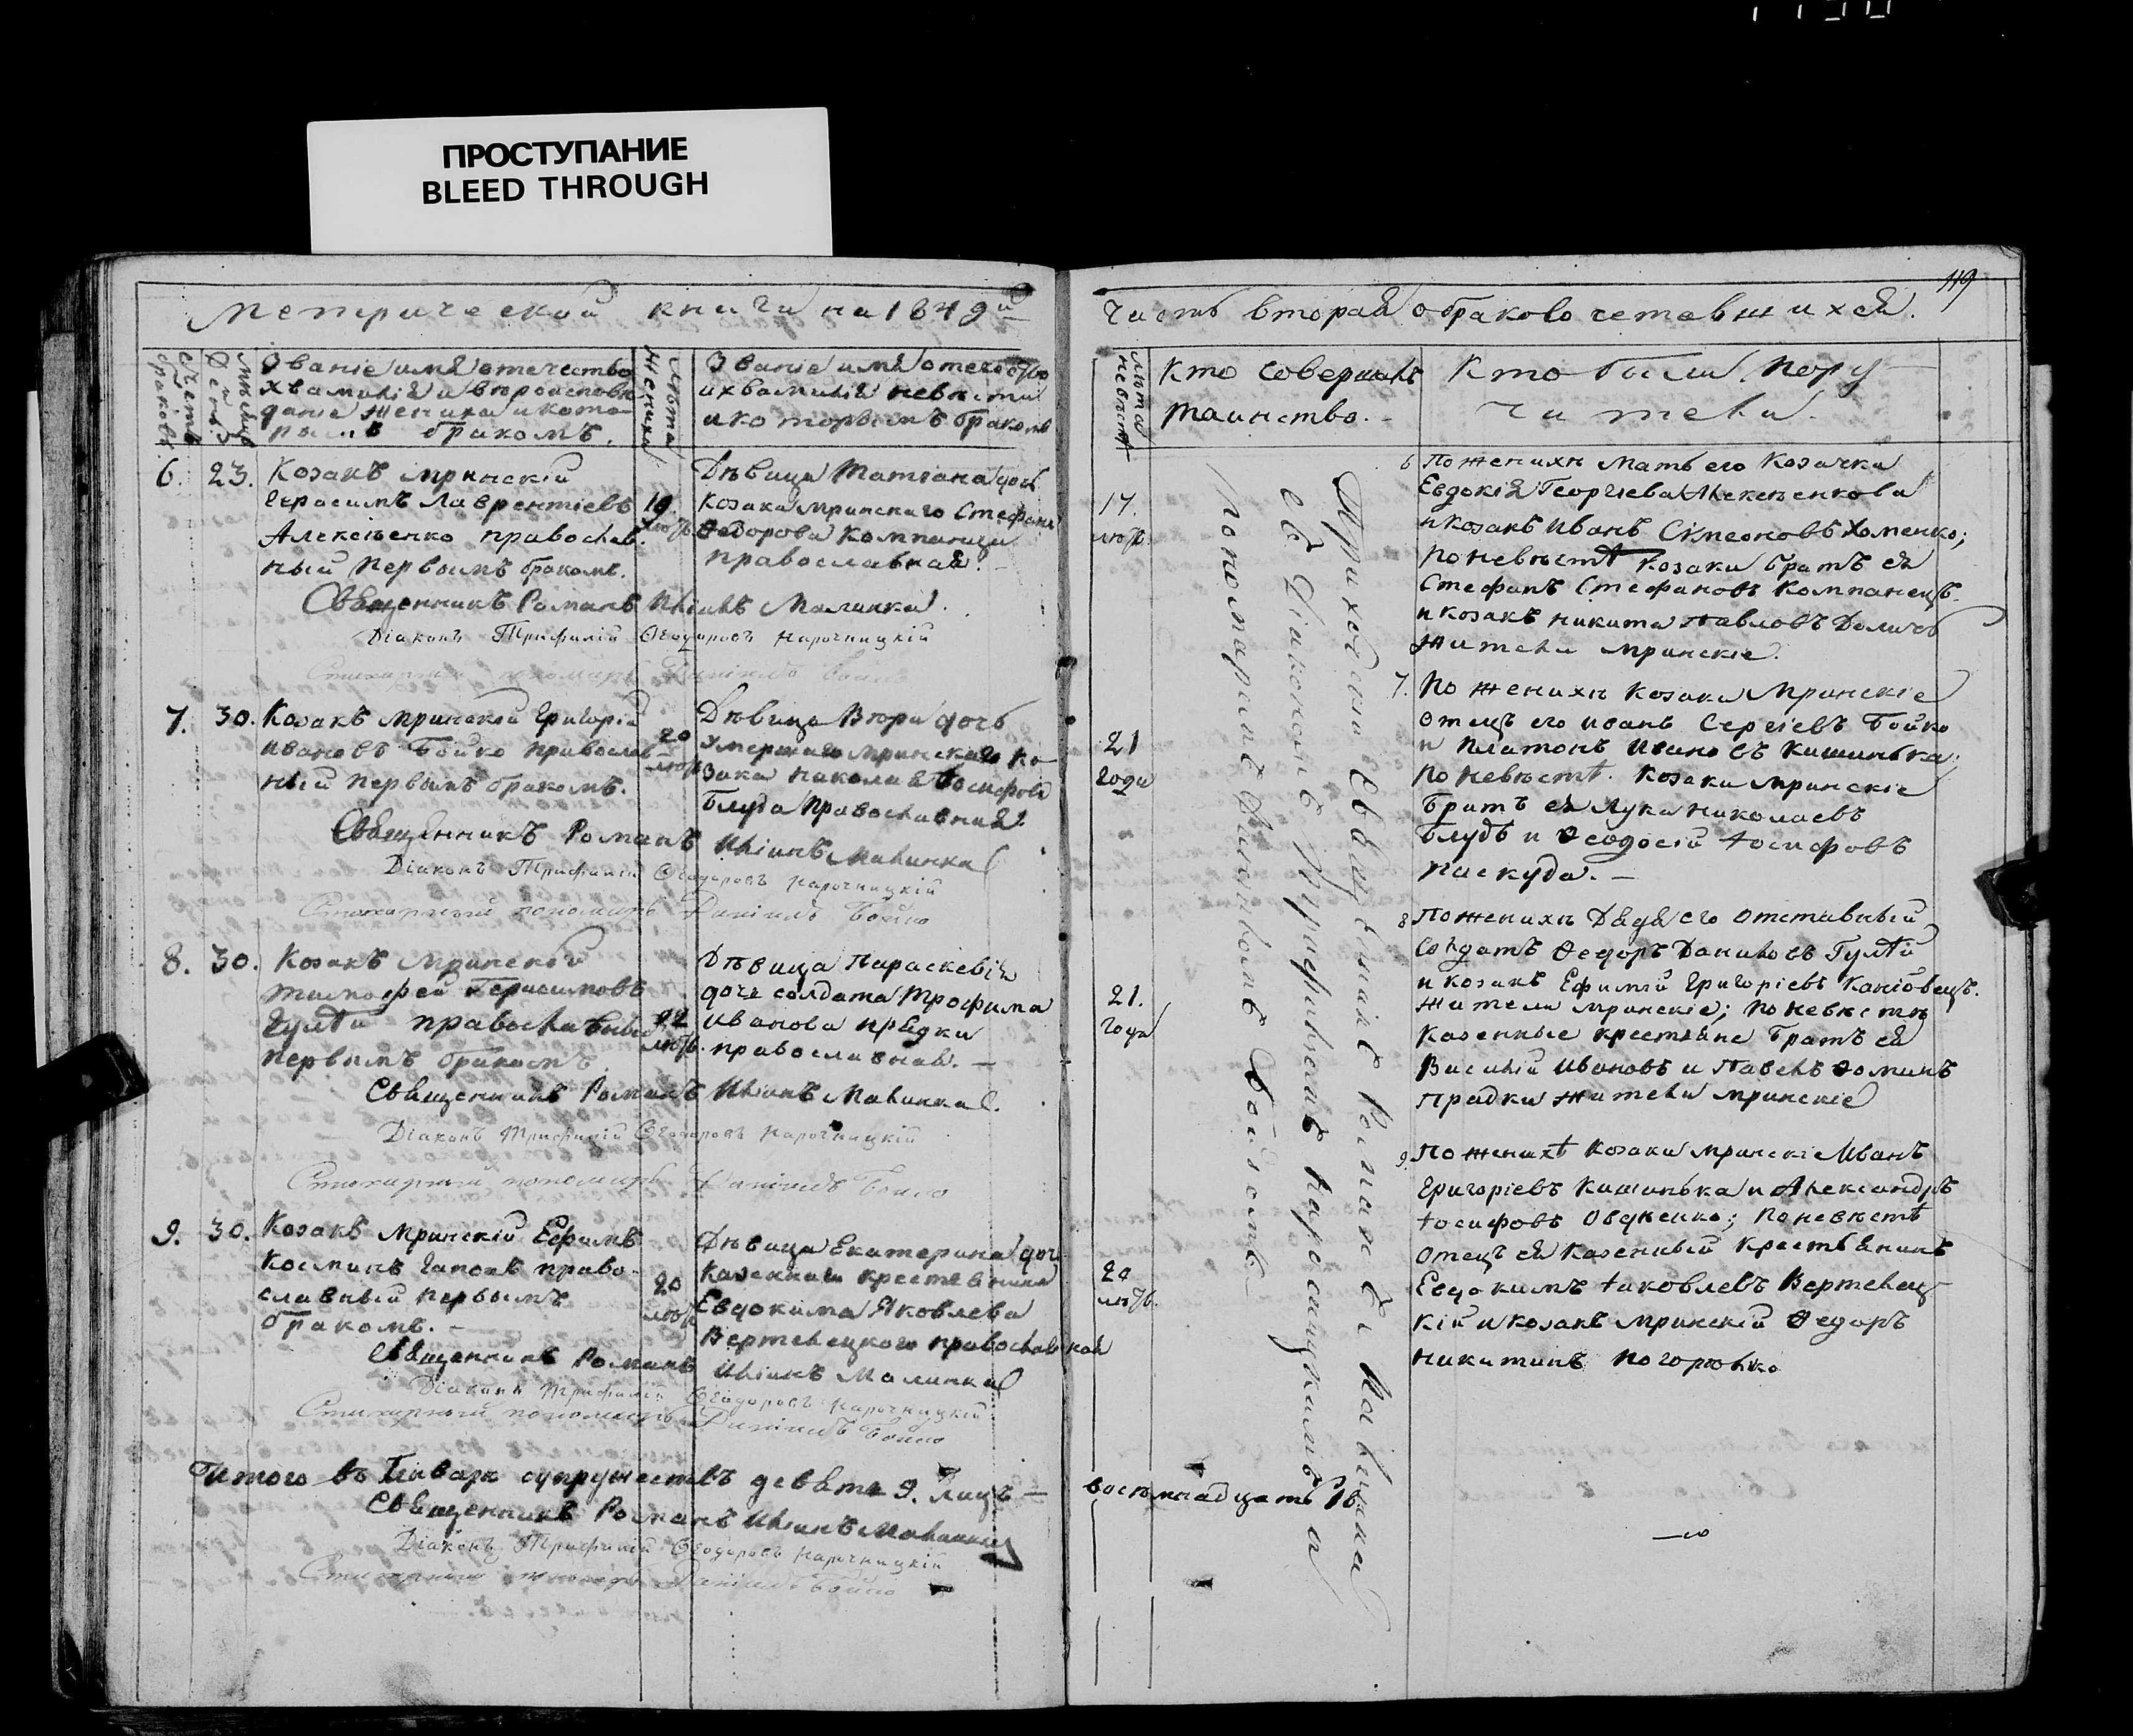 ПРОСТУПАНИЕ
BLEED THROUGH
Метрической книги на 1849й
Счетъ браковъ
Мѣсяцъ День
Званіе имя отечество
хвамилія и вѣроисповѣ
даніе жениха и кото-
рымъ бракомъ.
Лѣта жениха
Званіе имя отечество
и хвамилія невѣсти
и которымъ бракомъ
6. 23. Козакъ мринскій
Герасимъ Лаврентіевъ
Алексѣенко православ-
ный первымъ бракомъ.
19.
лѣтъ
Дѣвица Татіана дочь
козака мринскаго Стефана
Ѳедорова Компанца
православная.
Священникъ Романъ Иліинъ Малинка.
Діаконъ Трифилій Ѳеодоровъ Нарочницкій
Стихарный пономарь Даніилъ Бойко
7. 30. Козакъ мринскій Григорій
Ивановъ Бойко православ-
ный первымъ бракомъ.
20
лѣтъ
Дѣвица Вѣра дочь
умершаго мринскаго ко-
зака Николая Іосифова
Блуда православная.
Священникъ Романъ Иліинъ Малинка
Діаконъ Трифилій Ѳеодоровъ Нарочницкій
Стихарный пономарь Даніилъ Бойко
8. 30. Козакъ мринскій
Тимофей Герасимовъ
Гулѣй православный
первымъ бракомъ
22
лѣтъ.
Дѣвица Параскевія
дочь солдата Трофима
Иванова Прядки
православная.
Священникъ Романъ Иліинъ Малинка.
Діаконъ Трифилій Ѳеодоровъ Нарочницкій
Стихарный пономарь Даніилъ Бойко
9. 30. Козакъ мринскій Ефимъ
Косминъ Гапонъ право-
славный первымъ
бракомъ.
20
лѣтъ
Дѣвица Екатерина дочь
казеннаго крестянина
Евдокима Яковлева
Вертелецкого православная
Священникъ Романъ Иліинъ Малинка
Діаконъ Трифилій Ѳеодоровъ Нарочницкій
Стихарный пономарь Даніилъ Бойко
Итого въ Генварѣ супружествъ девять 9. Лицъ —
Священникъ Романъ Иліинъ Малинка
Діаконъ Трифилій Ѳеодоровъ Нарочницкій
Стихарный пономарь Даніилъ Бойко
119
Часть вторая о браковочетавшихся.
Лѣта невѣсты
Кто совершалъ
таинство.
Кто были пору-
чители.
17.
лѣтъ.
21
года
21.
года
20
лѣтъ.
Приходскій священникъ Романъ Малинка
съ Діакономъ Трифиліемъ Нарочницкимъ и
пономаремъ Даніиломъ Бойкомъ
6 По женихѣ мать его козачка
Евдокія Георгіева Алексѣенкова
и козакъ Иванъ Сімеоновъ Хоменко;
по невѣстѣ козаки братъ ея
Стефанъ Стефановъ Компанецъ
и козакъ Никита Павловъ
жители мринскіе.
7. По женихѣ козаки мринскіе
отецъ его Иванъ Сергіевъ Бойко
и Платонъ Ивановъ Кишинька;
по невѣстѣ козаки мринскіе
братъ ея Лука Николаевъ
Блудъ и Ѳеодосій Іосифовъ
Паскуда.
8 По женихѣ дядя его отставный
солдатъ Ѳедоръ Даниловъ Гулѣй
и козакъ Ефимій Григоріевъ Каніовецъ.
жители мринскіе; по невѣстѣ
казенные крестьяне братъ ея
Василій Ивановъ и Павелъ Ѳоминъ
Прядки жители мринскіе
9. По женихѣ козаки мринскіе Иванъ
Григоріевъ Кишинька и Александръ
Іосифовъ Овдѣенко; по невѣстѣ
отецъ ея казенный крестьянинъ
Евдокимъ Іаковлевъ Вертелец-
кій и козакъ мринскій Ѳедоръ
Никитинъ Погорѣлко
восѣмнадцать 18.